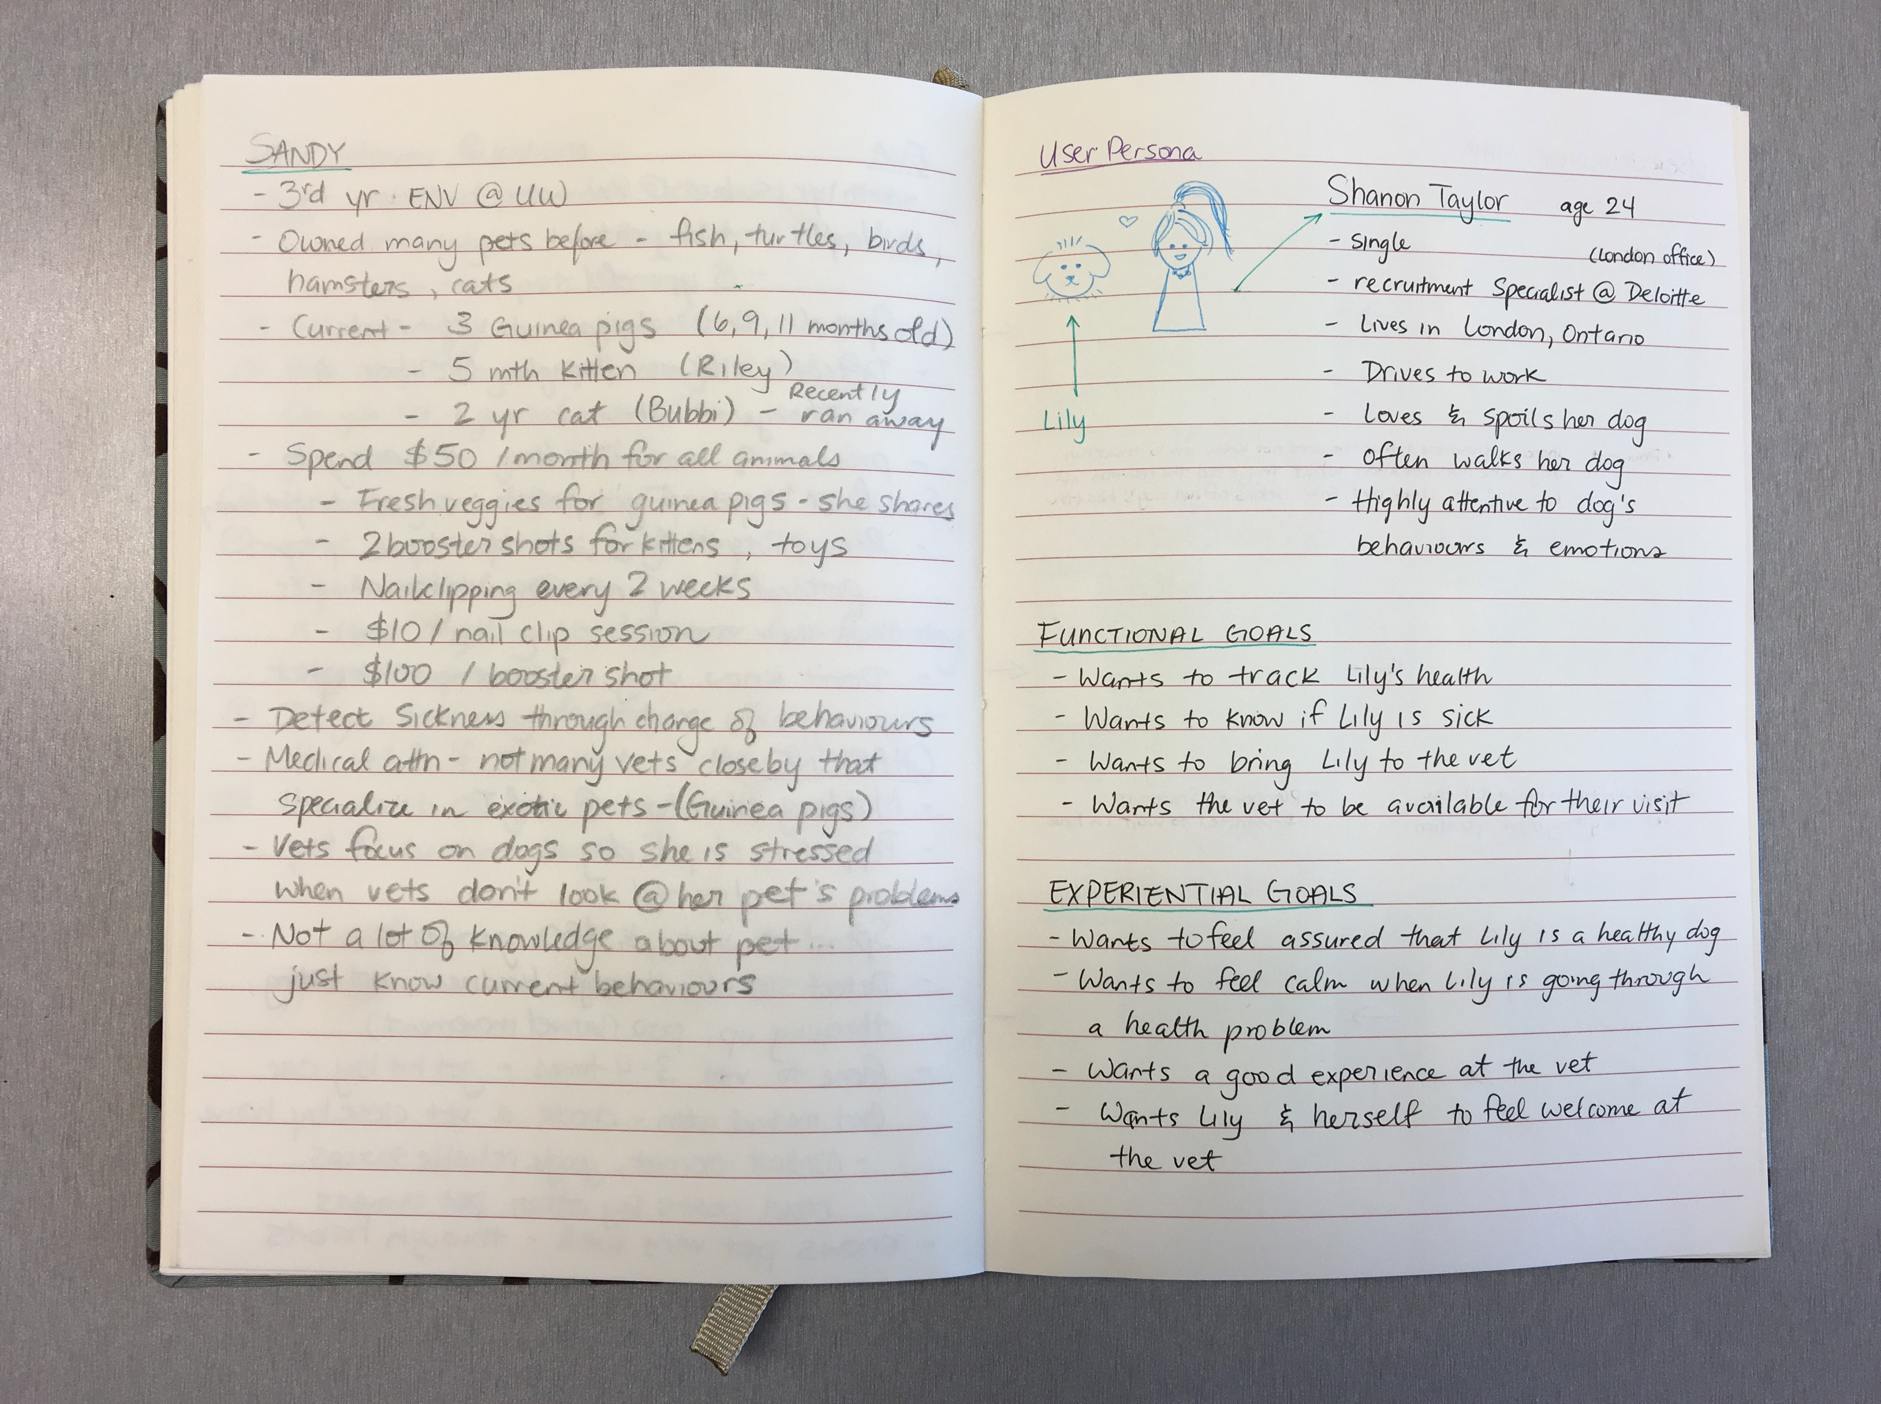 SANDY
- 3rd yr. ENV @ UW
- Owned many pets before - fish, turtles, birds,
hamsters, cats
- Current - 3 Guinea pigs (6, 9, 11 months old)
- 5 mth kitten (Riley)
- 2 yr cat (Bubbi) - Recently
ran away
- Spend $50 / month for all animals
- Fresh veggies for guinea pigs - she shares
- 2 booster shots for kittens, toys
- Nailclipping every 2 weeks
- $10 / nail clip session
- $100 / booster shot
- Detect Sickness through change of behaviours
- Medical attn - not many vets closeby that
specialize in exotic pets - (Guinea pigs)
- Vets focus on dogs so she is stressed
when vets don't look @ her pet's problems
- Not a lot of knowledge about pet ...
just know current behaviours
User Persona
Shanon Taylor age 24
- single
(London office)
- recruitment Specialist @ Deloitte
- Lives in London, Ontario
- Drives to work
- Loves & spoils her dog
- Often walks her dog
- Highly attentive to dog's
behaviours & emotions
Lily
FUNCTIONAL GOALS
- Wants to track Lily's health
- Wants to know if Lily is sick
- Wants to bring Lily to the vet
- Wants the vet to be available for their visit
EXPERIENTIAL GOALS
- Wants to feel assured that Lily is a healthy dog
- Wants to feel calm when Lily is going through
a health problem
- Wants a good experience at the vet
- Wants Lily & herself to feel welcome at
the vet